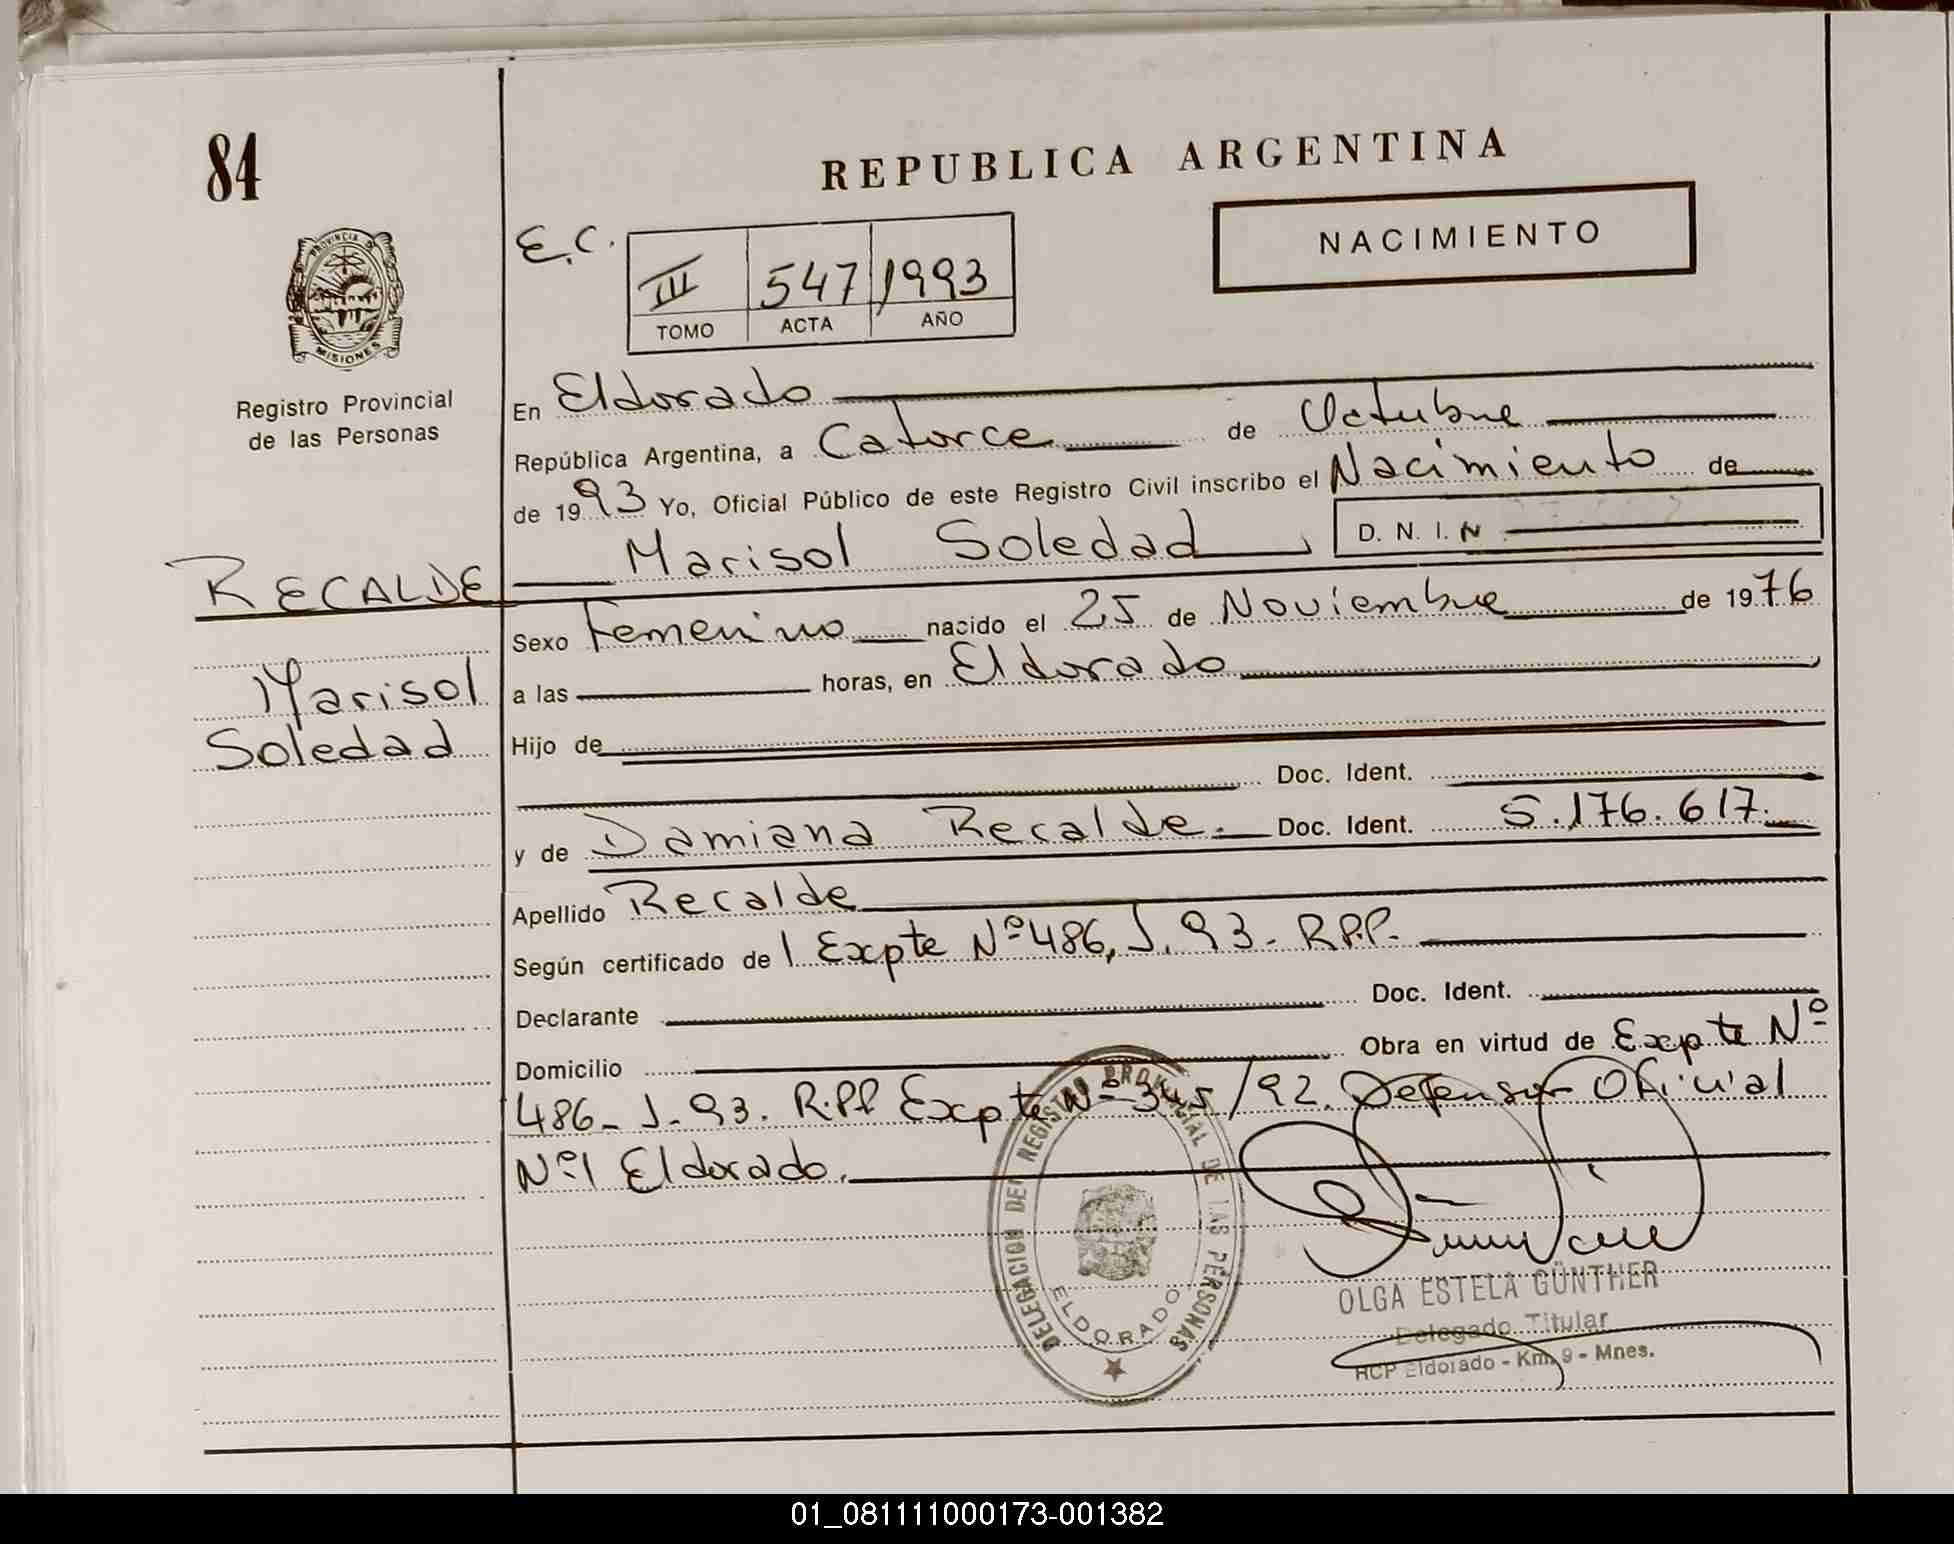 84
REPUBLICA ARGENTINA
NACIMIENTO
E.C.
III 547 1993
TOMO ACTA AÑO
PROVINCIA DE
MISIONES
Registro Provincial
de las Personas
En Eldorado
República Argentina, a Catorce de Octubre
de 1993 Yo, Oficial Público de este Registro Civil inscribo el Nacimiento de
Marisol Soledad D. N. I. N
RECALDE
Marisol
Soledad
Sexo Femenino nacido el 25 de Noviembre de 1976
a las horas, en Eldorado
Hijo de
Doc. Ident.
y de Damiana Recalde. Doc. Ident. 5.176.617.
Apellido Recalde
Según certificado de Expte Nº 486, J. 93. R.P.P.
Declarante Doc. Ident.
Domicilio Obra en virtud de Expte Nº
486- J- 93. R.P.P Expte Nº 345/92. Defensor Oficial
Nº1 Eldorado.
DELEGACION DEL REGISTRO PROVINCIAL DE LAS PERSONAS
ELDORADO
OLGA ESTELA GÜNTHER
Delegado Titular
RCP Eldorado - Km. 9 - Mnes.
01_081111000173-001382